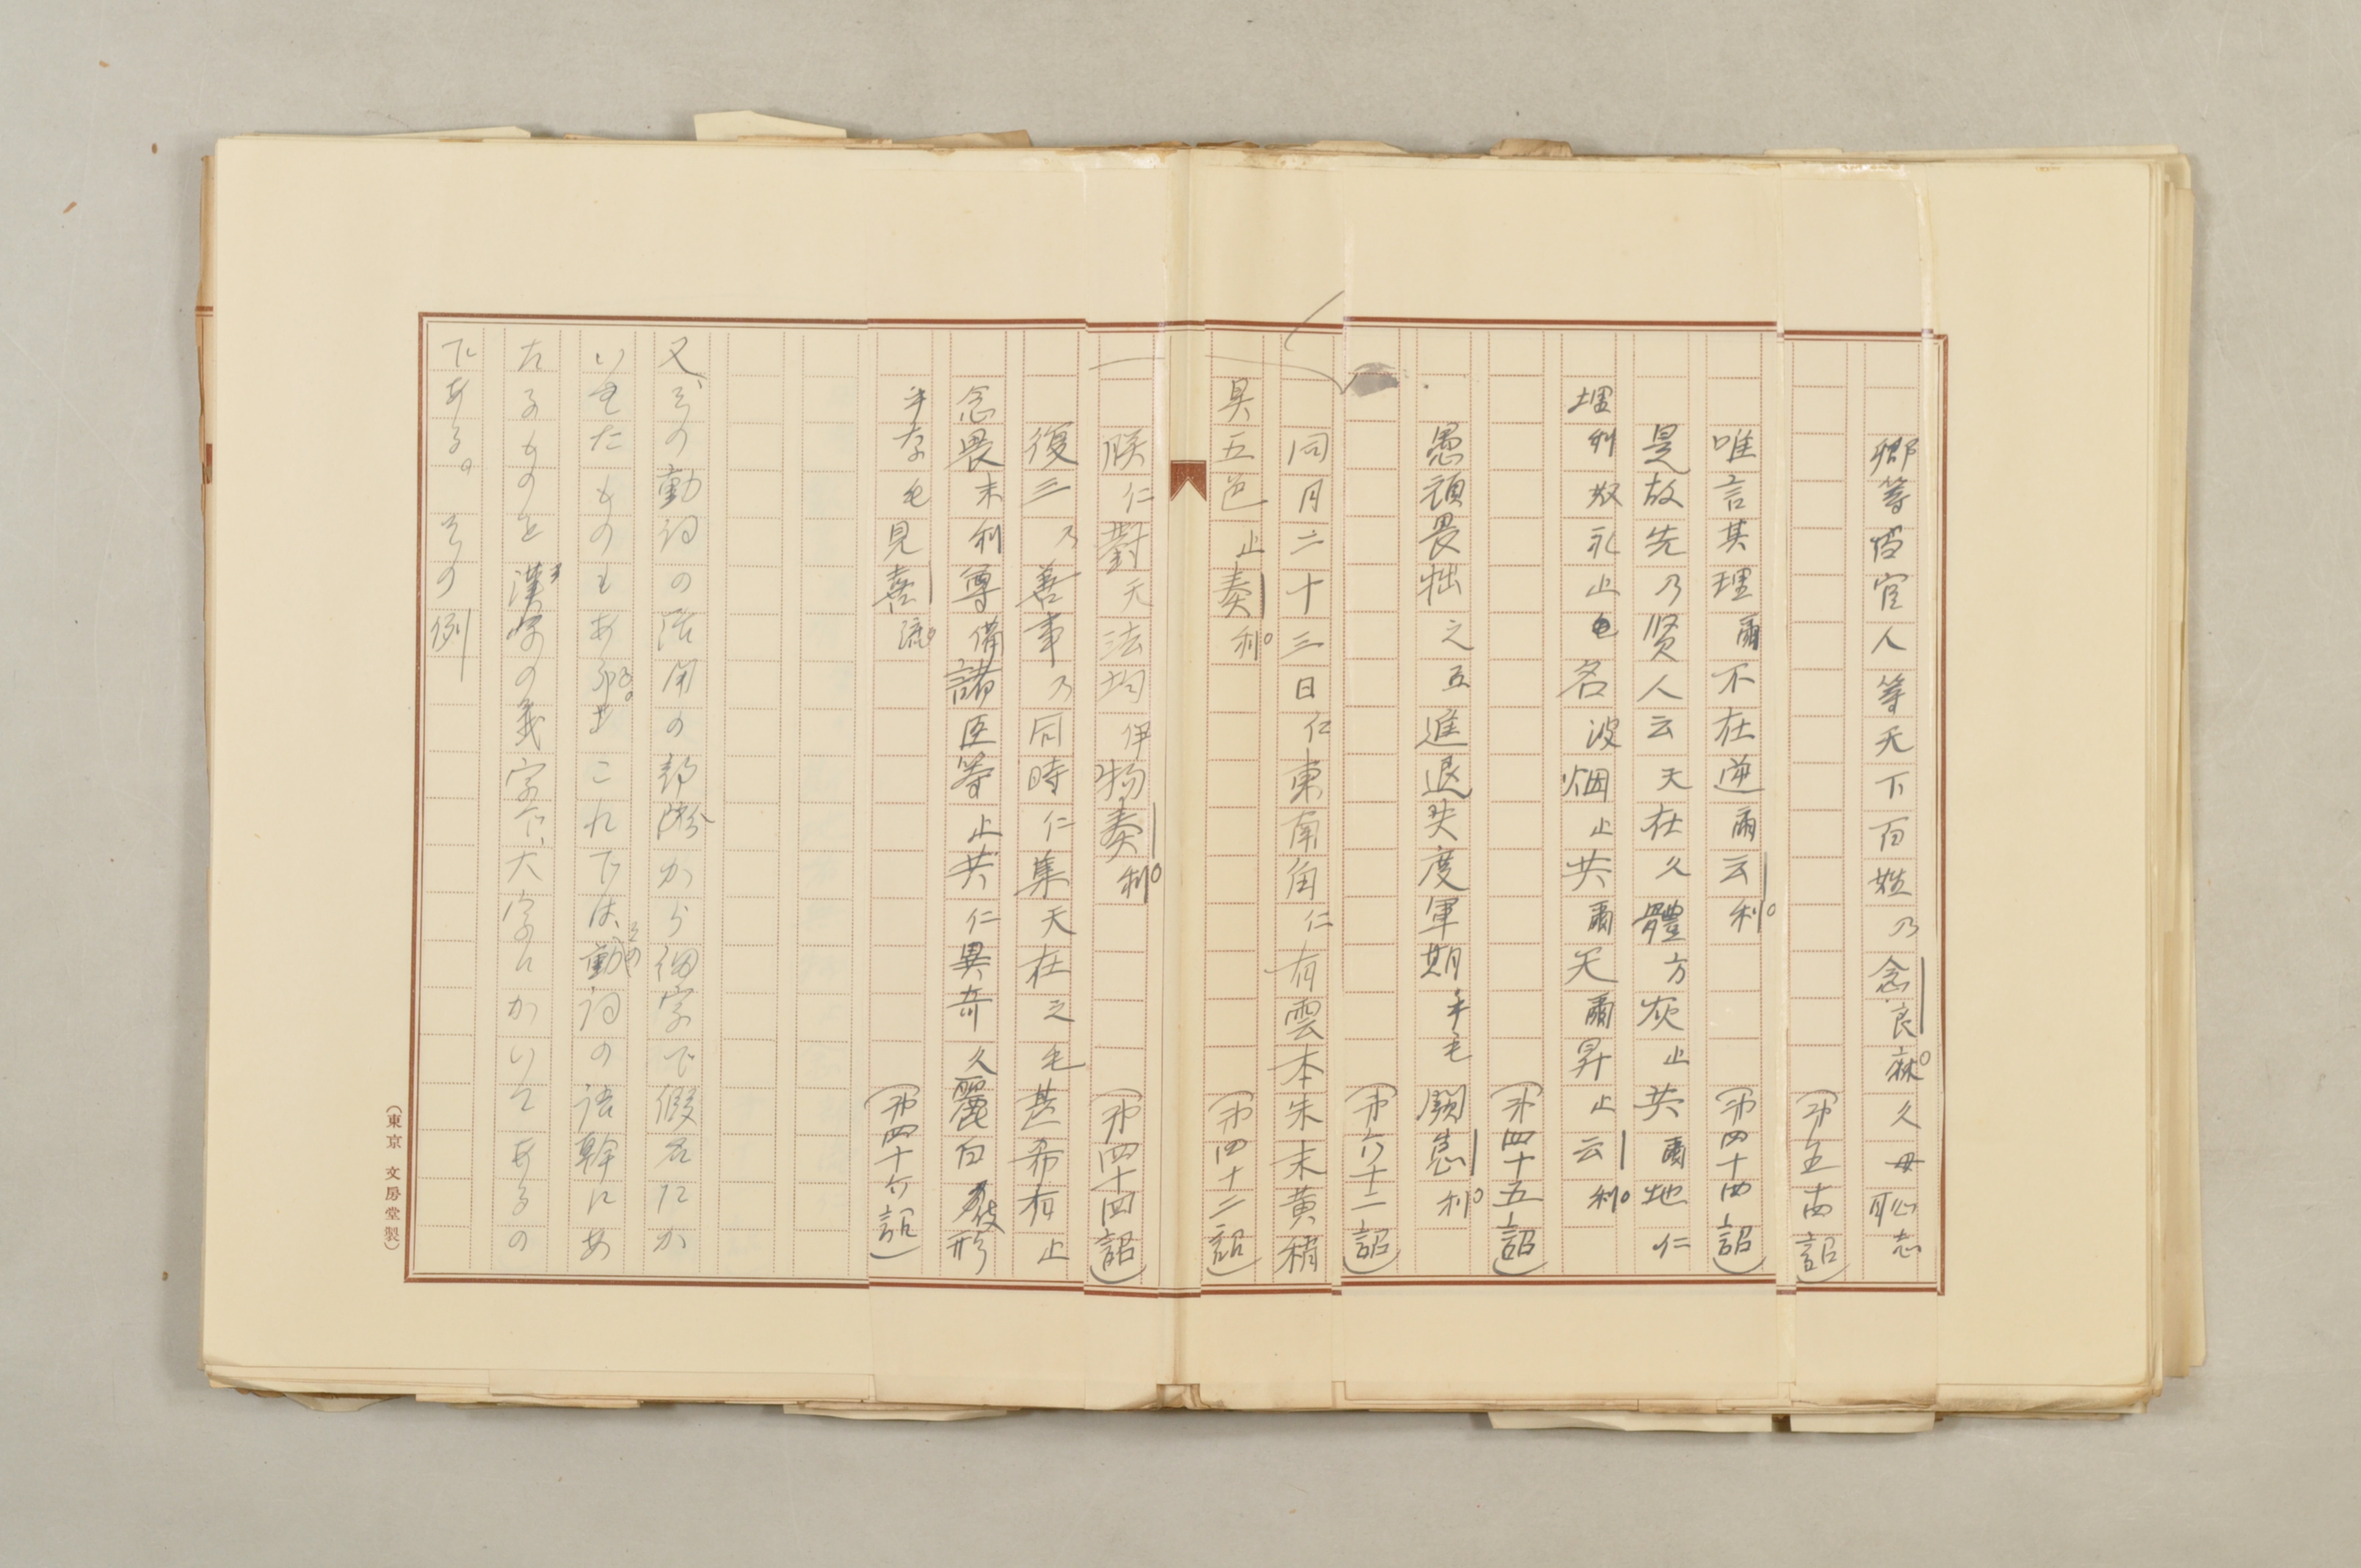 卿等百官人等天下百姓乃念良麻久母恥志
(第五十四詔)
唯言其理爾不在逆爾云利
(第四十四詔)
是故先乃賢人云天在久體方灰止共爾地仁
埋利奴礼止名波烟止共爾天爾昇止云利
(第四十五詔)
愚頑畏拙之弖進退失度軍期乎毛闕怠利
(第六十二詔)
同月二十三日仁東南角仁有雲本朱末黄稍
具五色止奏利
(第四十二詔)
朕仁對天法均伊物奏利
(第四十四詔)
復三乃善事乃同時仁集天在之毛甚希有止
念畏末利尊備諸臣等止共仁異奇久麗白伎形
乎奈毛見喜流
(第四十六詔)
又その動詞の活用の部分から細字で假名にか
いをたものもある。これでは、その動詞の語幹にあ
たるものを漢字の義字で、大字にかいてあるの
である。その例
(東京 文房堂製)